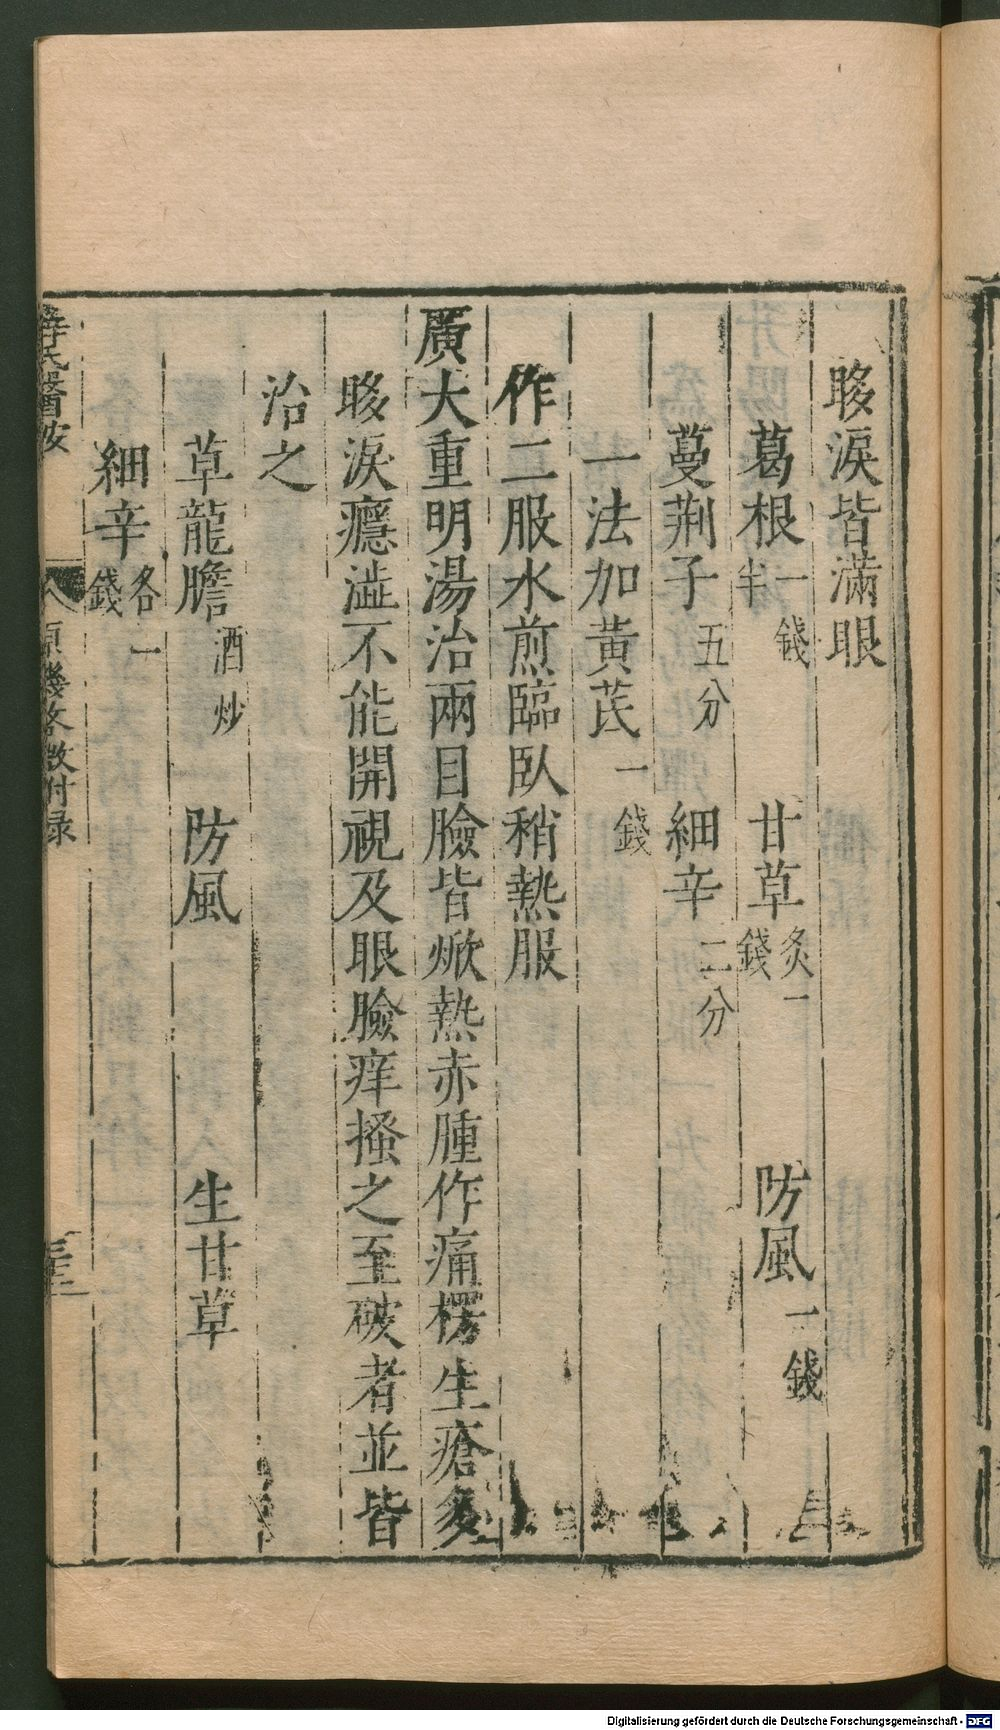 眵淚皆滿眼
葛根一錢半 甘草炙一錢 防風一錢
蔓荆子五分 細辛二分
一法加黃芪一錢
作二服水煎臨臥稍熱服
廣大重明湯治兩目臉皆焮熱赤腫作痛楞生瘡多
眵淚癮澁不能開視及眼臉痒搔之至破者並皆
治之
草龍膽酒炒 防風 生甘草
細辛各一錢
氏醫按 原機啓微付录
Digitalisierung gefördert durch die Deutsche Forschungsgemeinschaft - DFG